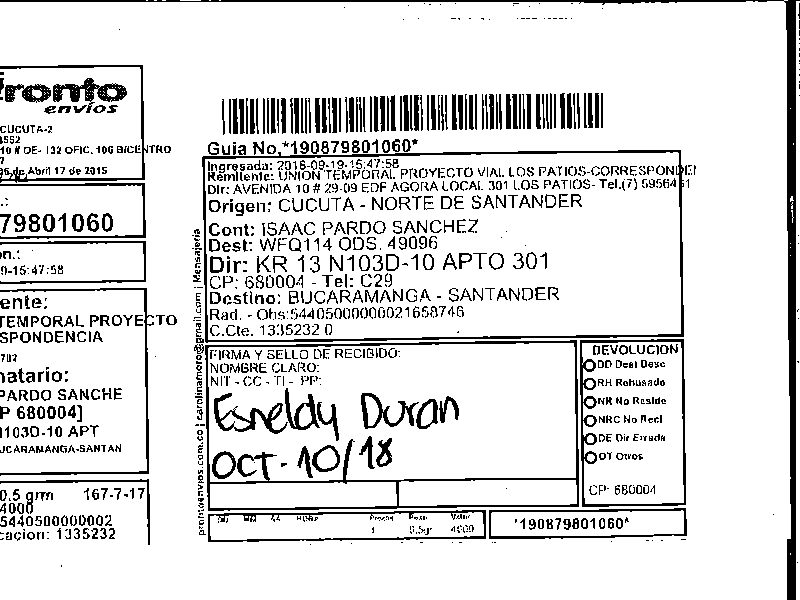 pronto
envios
CUCUTA-2
10 # DE- 132 OFIC. 106 B/CENTRO
de Abril 17 de 2015
79801060
9-15:47:58
ente:
TEMPORAL PROYECTO
SPONDENCIA
natario:
PARDO SANCHE
P 680004]
N103D-10 APT
UCARAMANGA-SANTAN
0.5 grm 167-7-17
4000
5440500000002
cacion: 1335232
Guia No.*190879801060*
Ingresada: 2018-09-19-15:47:58
Remitente: UNION TEMPORAL PROYECTO VIAL LOS PATIOS-CORRESPONDEN
Dir: AVENIDA 10 # 29-09 EDF AGORA LOCAL 301 LOS PATIOS- Tel.(7) 5956461
Origen: CUCUTA - NORTE DE SANTANDER
Cont: ISAAC PARDO SANCHEZ
Dest: WFQ114 ODS. 49096
Dir: KR 13 N103D-10 APTO 301
CP: 680004 - Tel: C29
Destino: BUCARAMANGA - SANTANDER
Rad. - Obs:54405000000021658746
C.Cte. 1335232 0
FIRMA Y SELLO DE RECIBIDO:
NOMBRE CLARO:
NIT - CC - TI - PP:
Esneldy Duran
OCT-10/18
DEVOLUCION
DD Desl Desc
RH Rehusado
NR No Reside
NRC No Recl
DE Dir Errada
OT Otros
CP: 680004
DD MM AA HORA
Peso Valor
1 0.5gr 4000
*190879801060*
prontoenvios.com.co | carolinamoro@gmail.com | Mensajeria